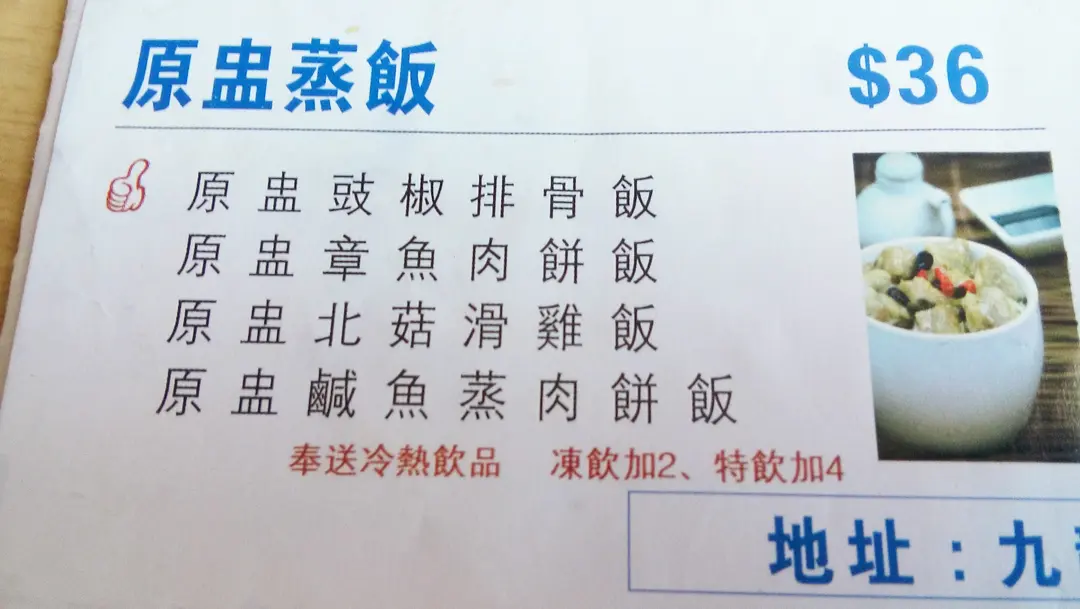 原盅蒸飯 $36
原盅豉椒排骨飯
原盅章魚肉餅飯
原盅北菇滑雞飯
原盅鹹魚蒸肉餅飯
奉送冷熱飲品 凍飲加2、特飲加4
地址：九